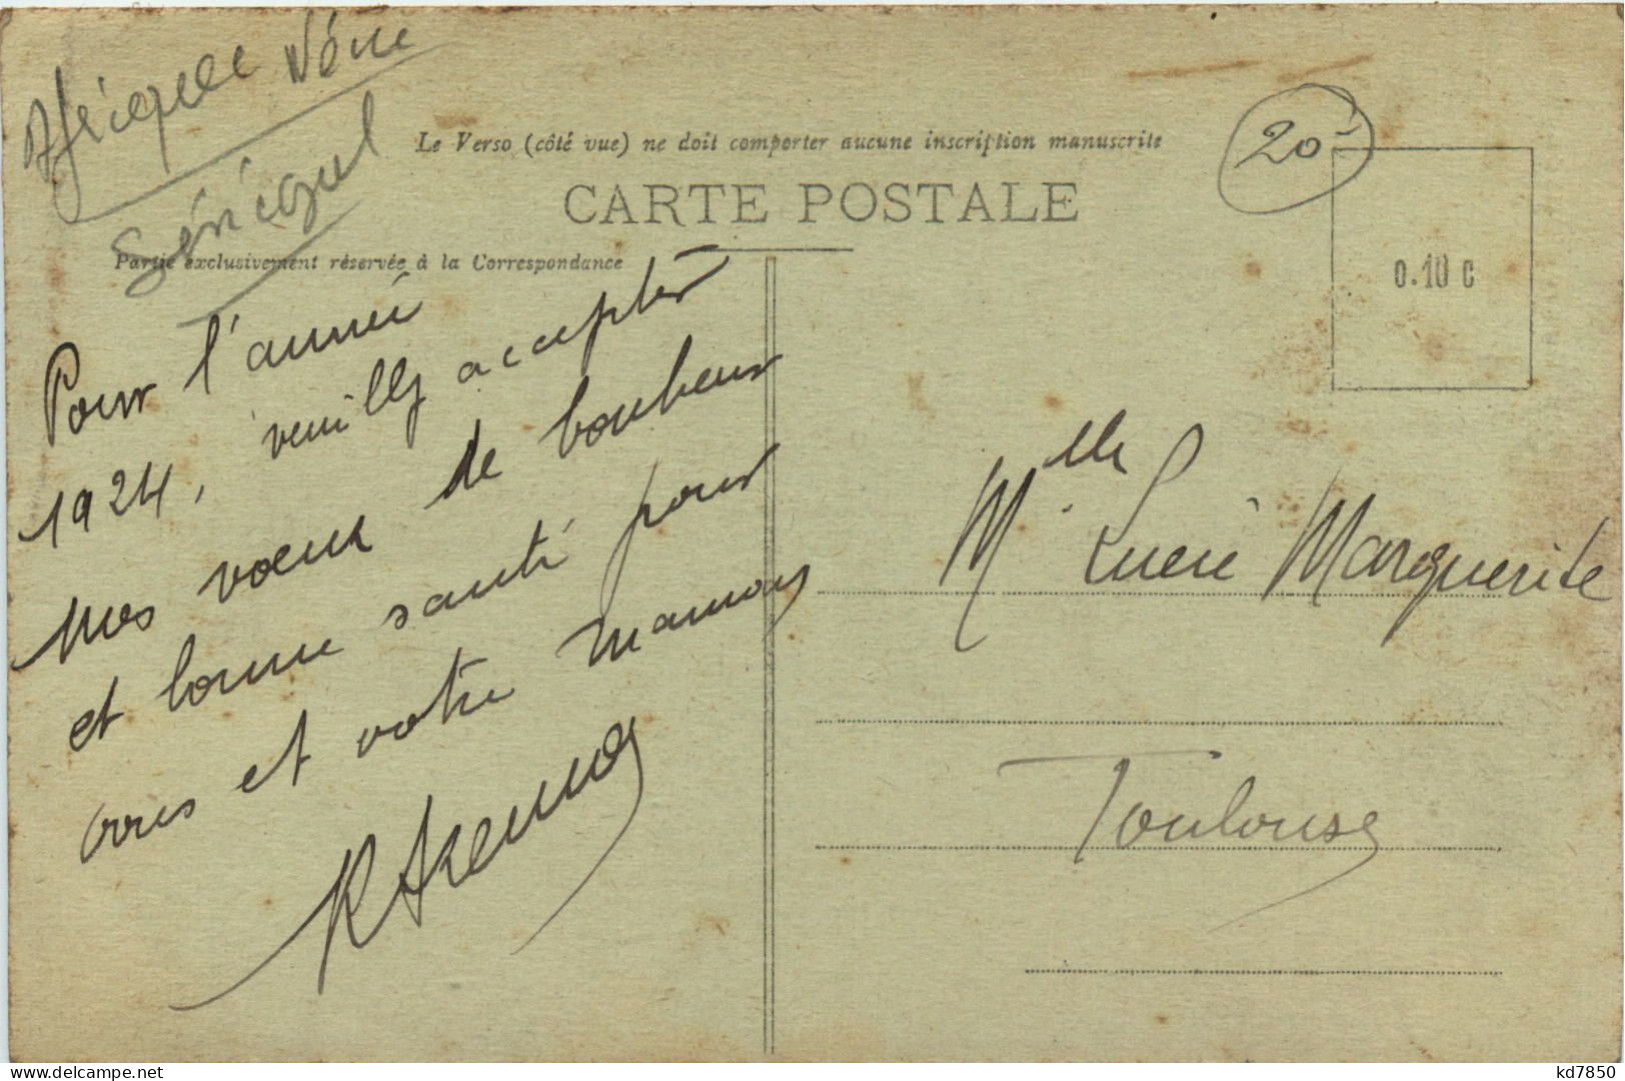 Afrique Noire
Sénégal
20-
Le Verso (côté vue) ne doit comporter aucune inscription manuscrite
CARTE POSTALE
Partie exclusivement réservée à la Correspondance
0.10 C
Pour l'année
1924, veuillez accepter
mes voeux de bonheur
et bonne santé pour
vous et votre maman
Mlle Lucie Marguerite
Toulouse
www.delcampe.net
kd7850